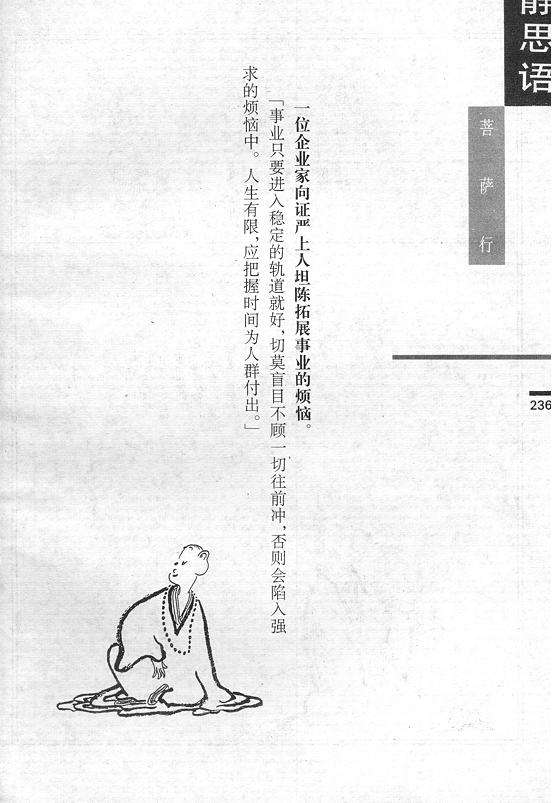 静思语
菩萨行
一位企业家向证严上人坦陈拓展事业的烦恼。
「事业只要进入稳定的轨道就好，切莫盲目不顾一切往前冲，否则会陷入强
求的烦恼中。人生有限，应把握时间为人群付出。」
236